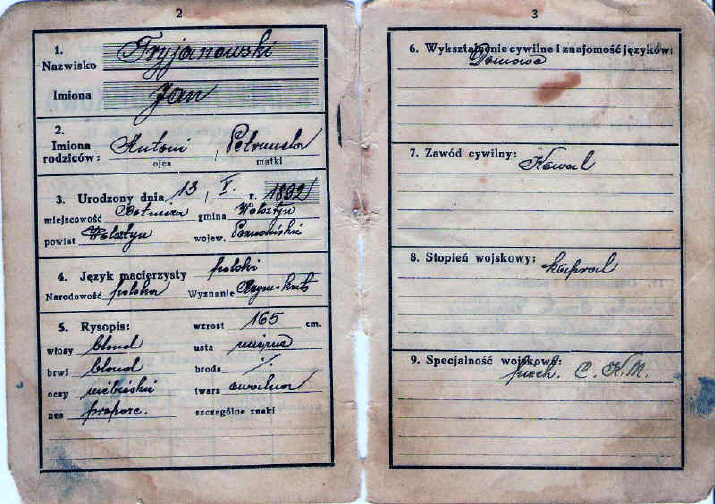 2
1.
Nazwisko Tryjanowski
Imiona Jan
2.
Imiona
rodziców: Antoni , Petronela
ojca matki
3. Urodzony dnia 13 , V. r. 1892
miejscowość gmina Wolsztyn
powiat Wolsztyn wojew. Poznański
4. Język macierzysty polski
Narodowość polska Wyznanie Rzym-kat
5. Rysopis: wzrost 165 cm.
włosy blond usta
brwi blond broda
oczy niebieskie twarz owalna
nos proporc. szczególne znaki
3
6. Wykształcenie cywilne i znajomość języków:
Domowe
7. Zawód cywilny:
Kowal
8. Stopień wojskowy:
kapral
9. Specjalność wojskowa:
piech. C.K.M.